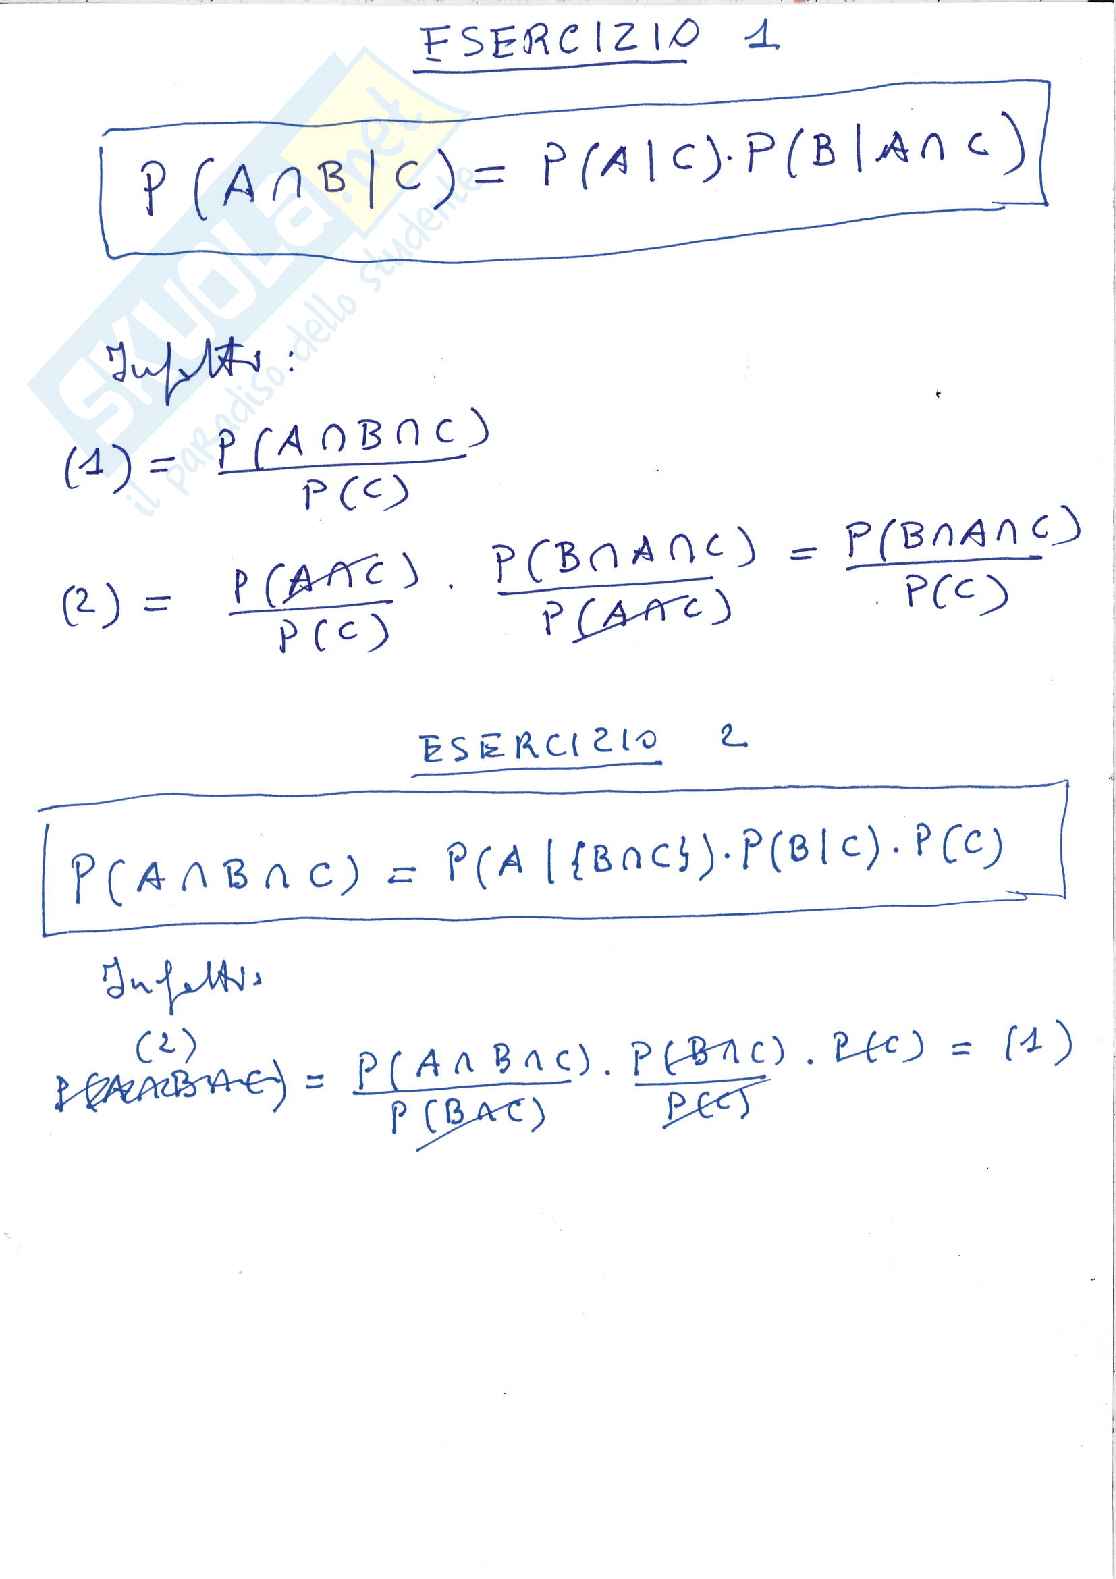 ESERCIZIO 1
P(A∩B|C) = P(A|C)·P(B|A∩C)
SKUOLA.net
il paradiso dello studente
Infatti:
(1) = P(A∩B∩C) / P(C)
(2) = P(A∩C) / P(C) · P(B∩A∩C) / P(A∩C) = P(B∩A∩C) / P(C)
ESERCIZIO 2
P(A∩B∩C) = P(A|{B∩C})·P(B|C)·P(C)
Infatti:
(2)
P(A∩B∩C) = P(A∩B∩C) / P(B∩C) · P(B∩C) / P(C) · P(C) = (1)